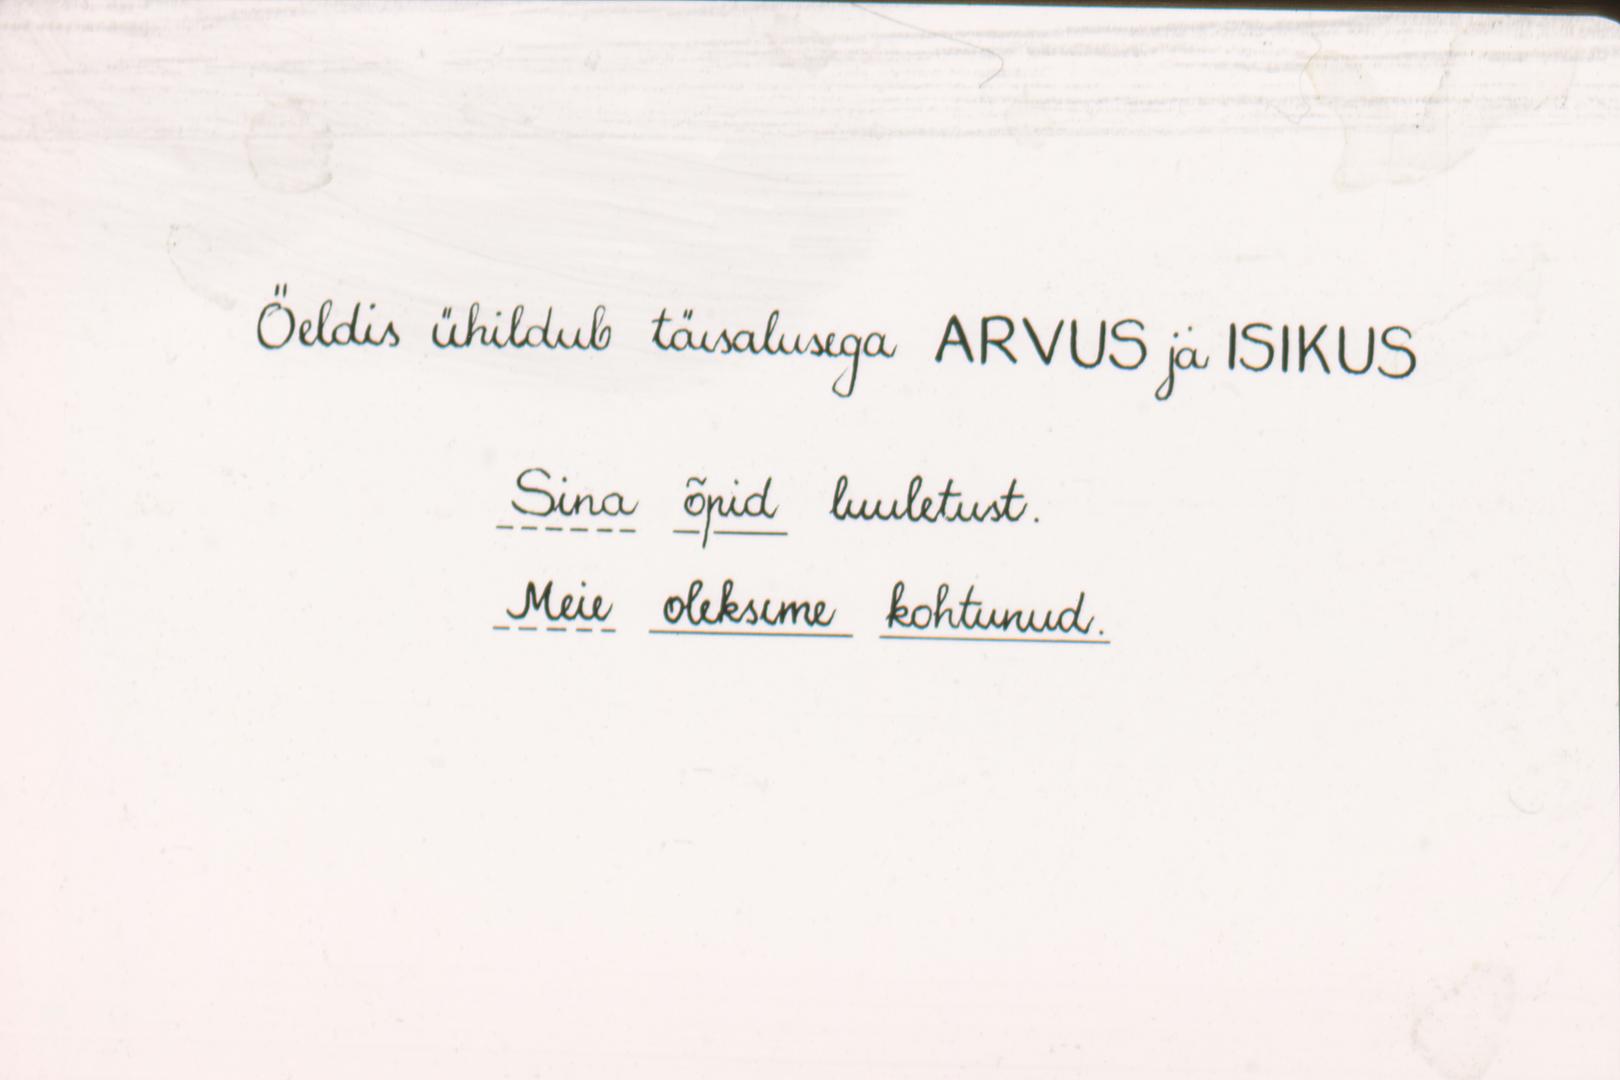 Öeldis ühildub täisalusega ARVUS jä ISIKUS
Sina õpid luuletust.
Meie oleksime kohtunud.